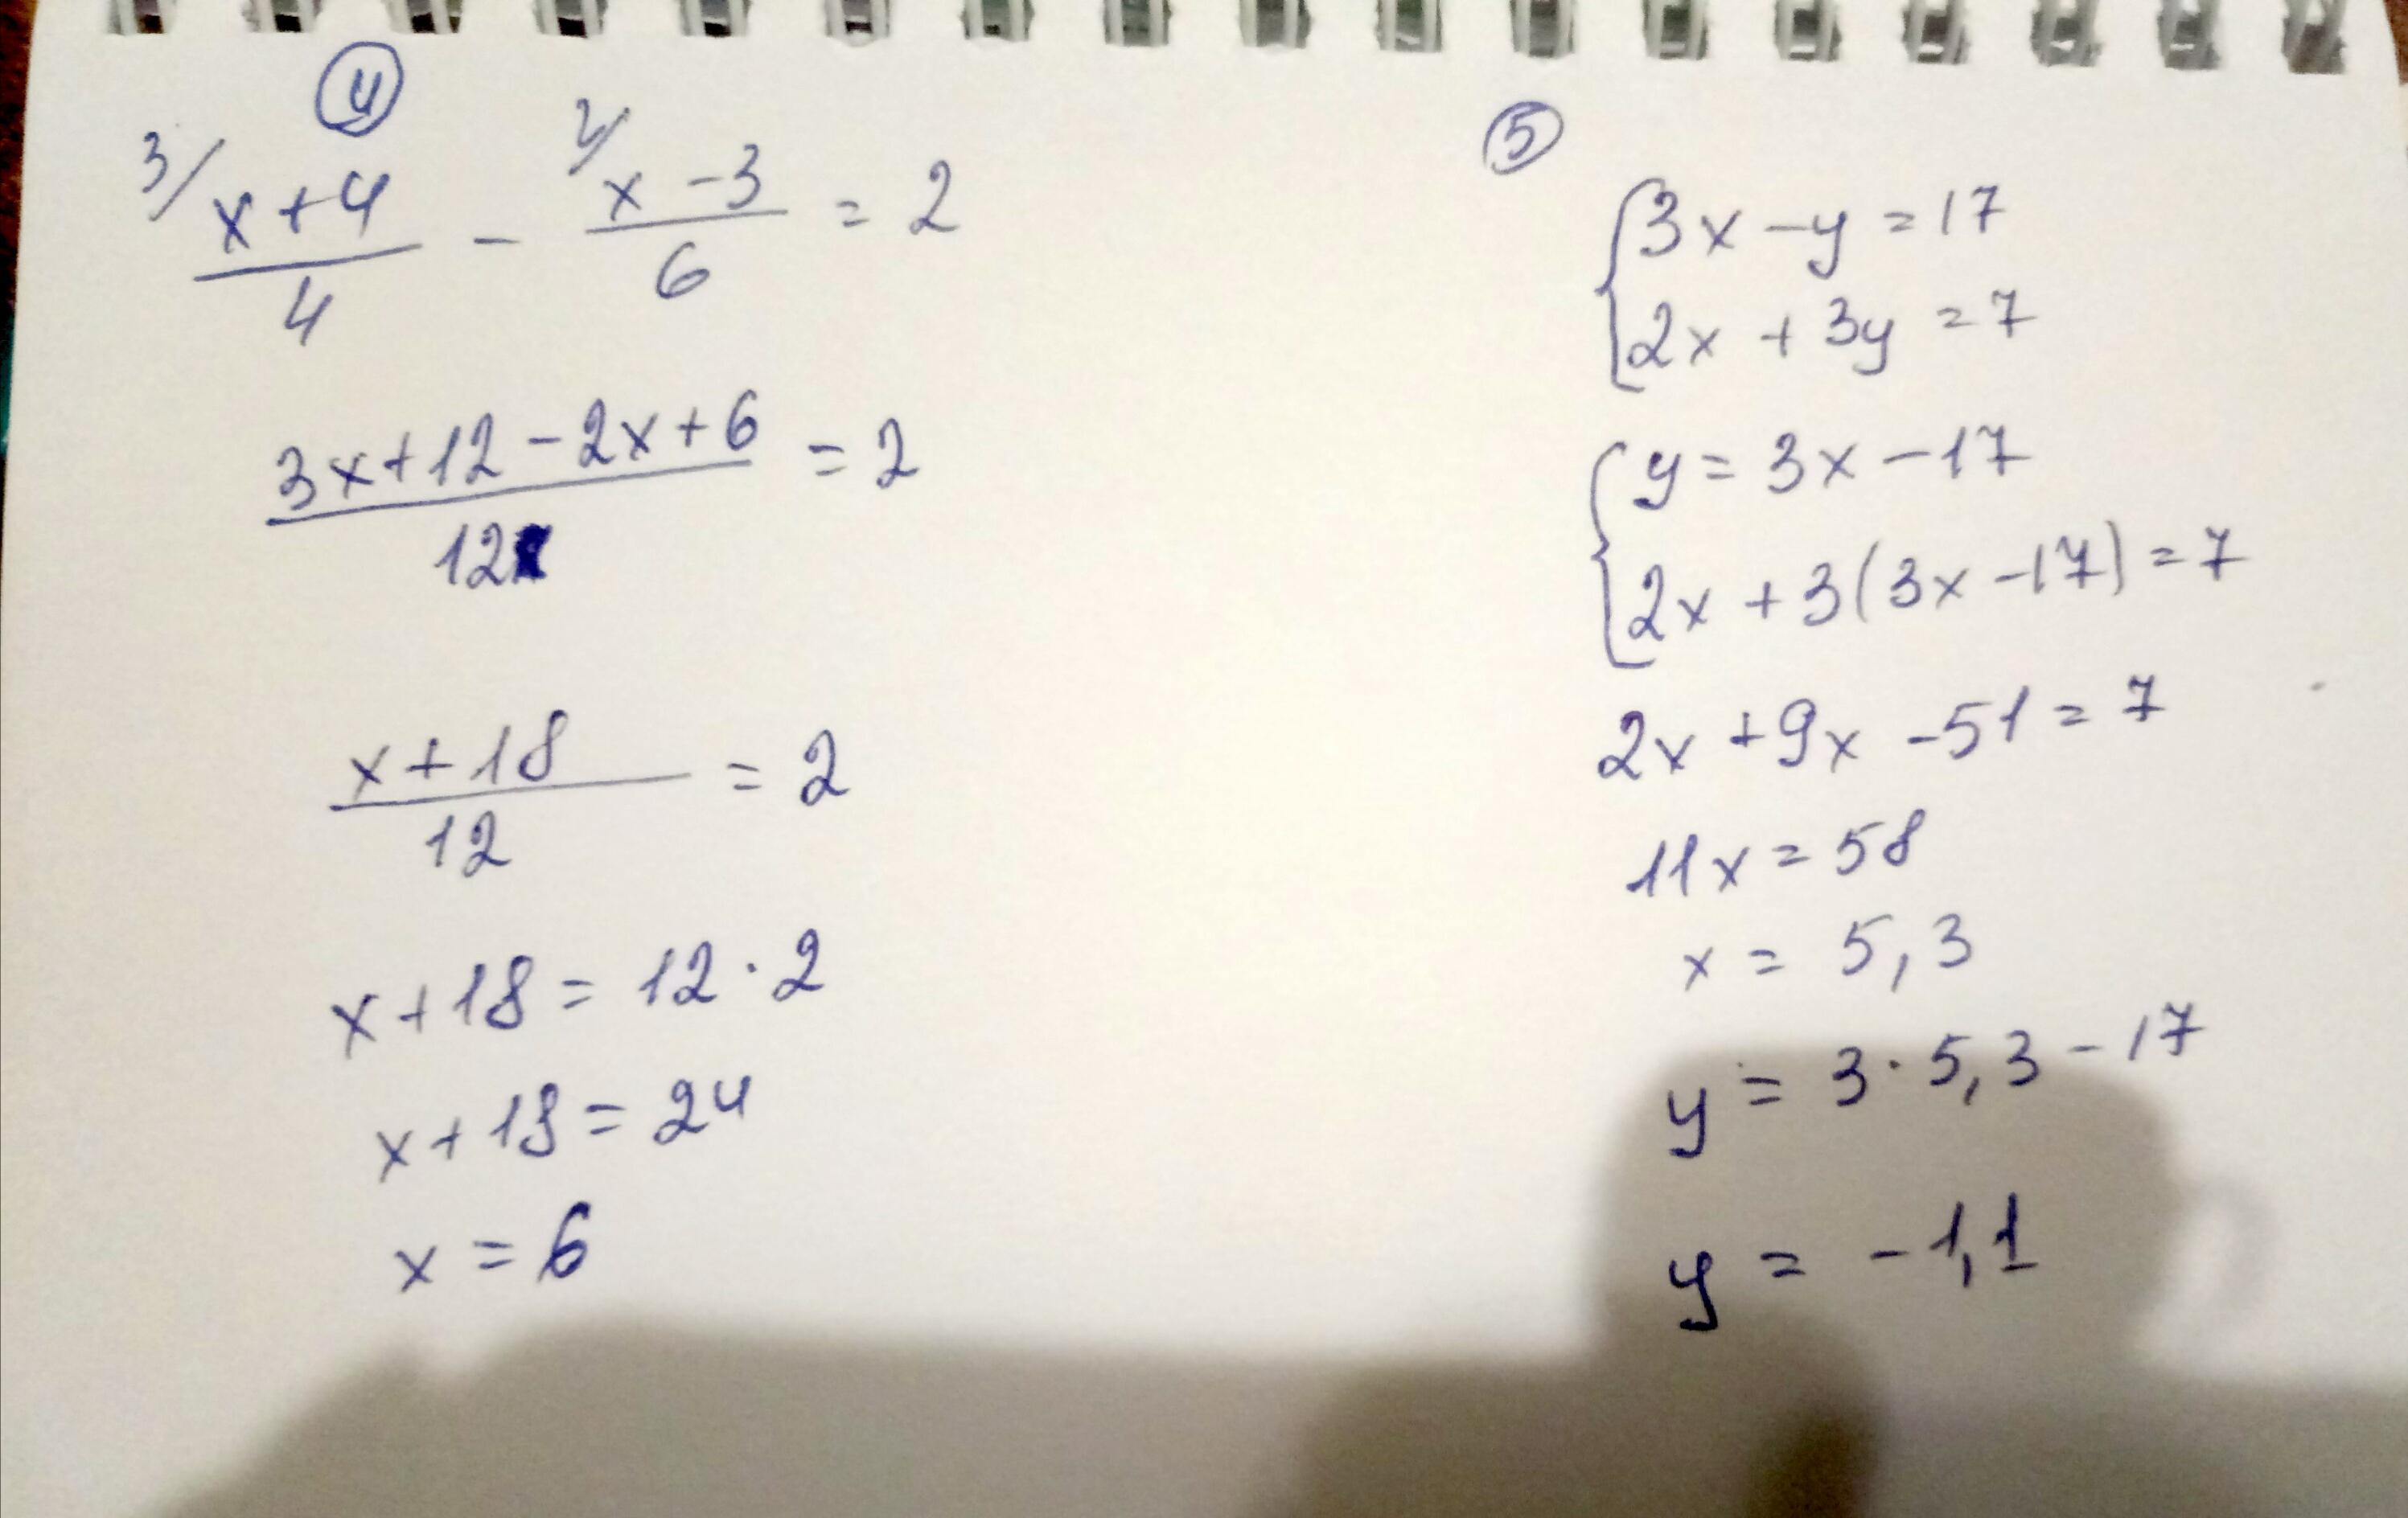 4
3/ x+4 / 4 - 2/ x-3 / 6 = 2
3x+12-2x+6 / 12 = 2
x+18 / 12 = 2
x+18 = 12·2
x+18 = 24
x = 6
5
{3x-y=17
{2x+3y=7
{y=3x-17
{2x+3(3x-17)=7
2x+9x-51=7
11x=58
x=5,3
y=3·5,3-17
y=-1,1